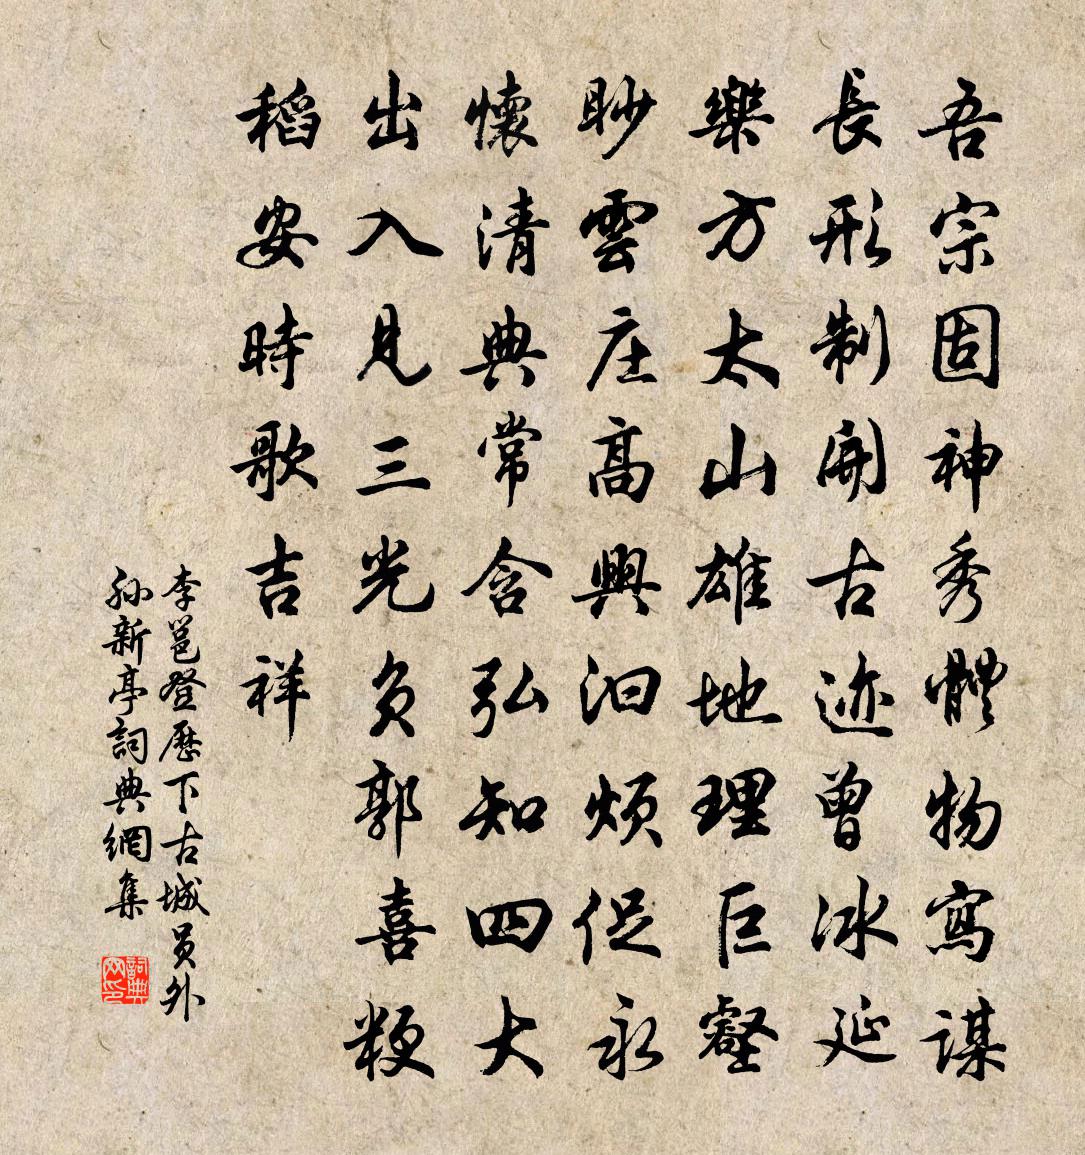 吾宗固神秀體物寫謀
長形制開古迹曾冰延
樂方太山雄地理巨壑
眇雲庄高興汩煩促永
懷清典常含弘知四大
出入見三光負郭喜粳
稻安時歌吉祥
李邕登歷下古城員外
孙新亭詞典網集
詞典网印